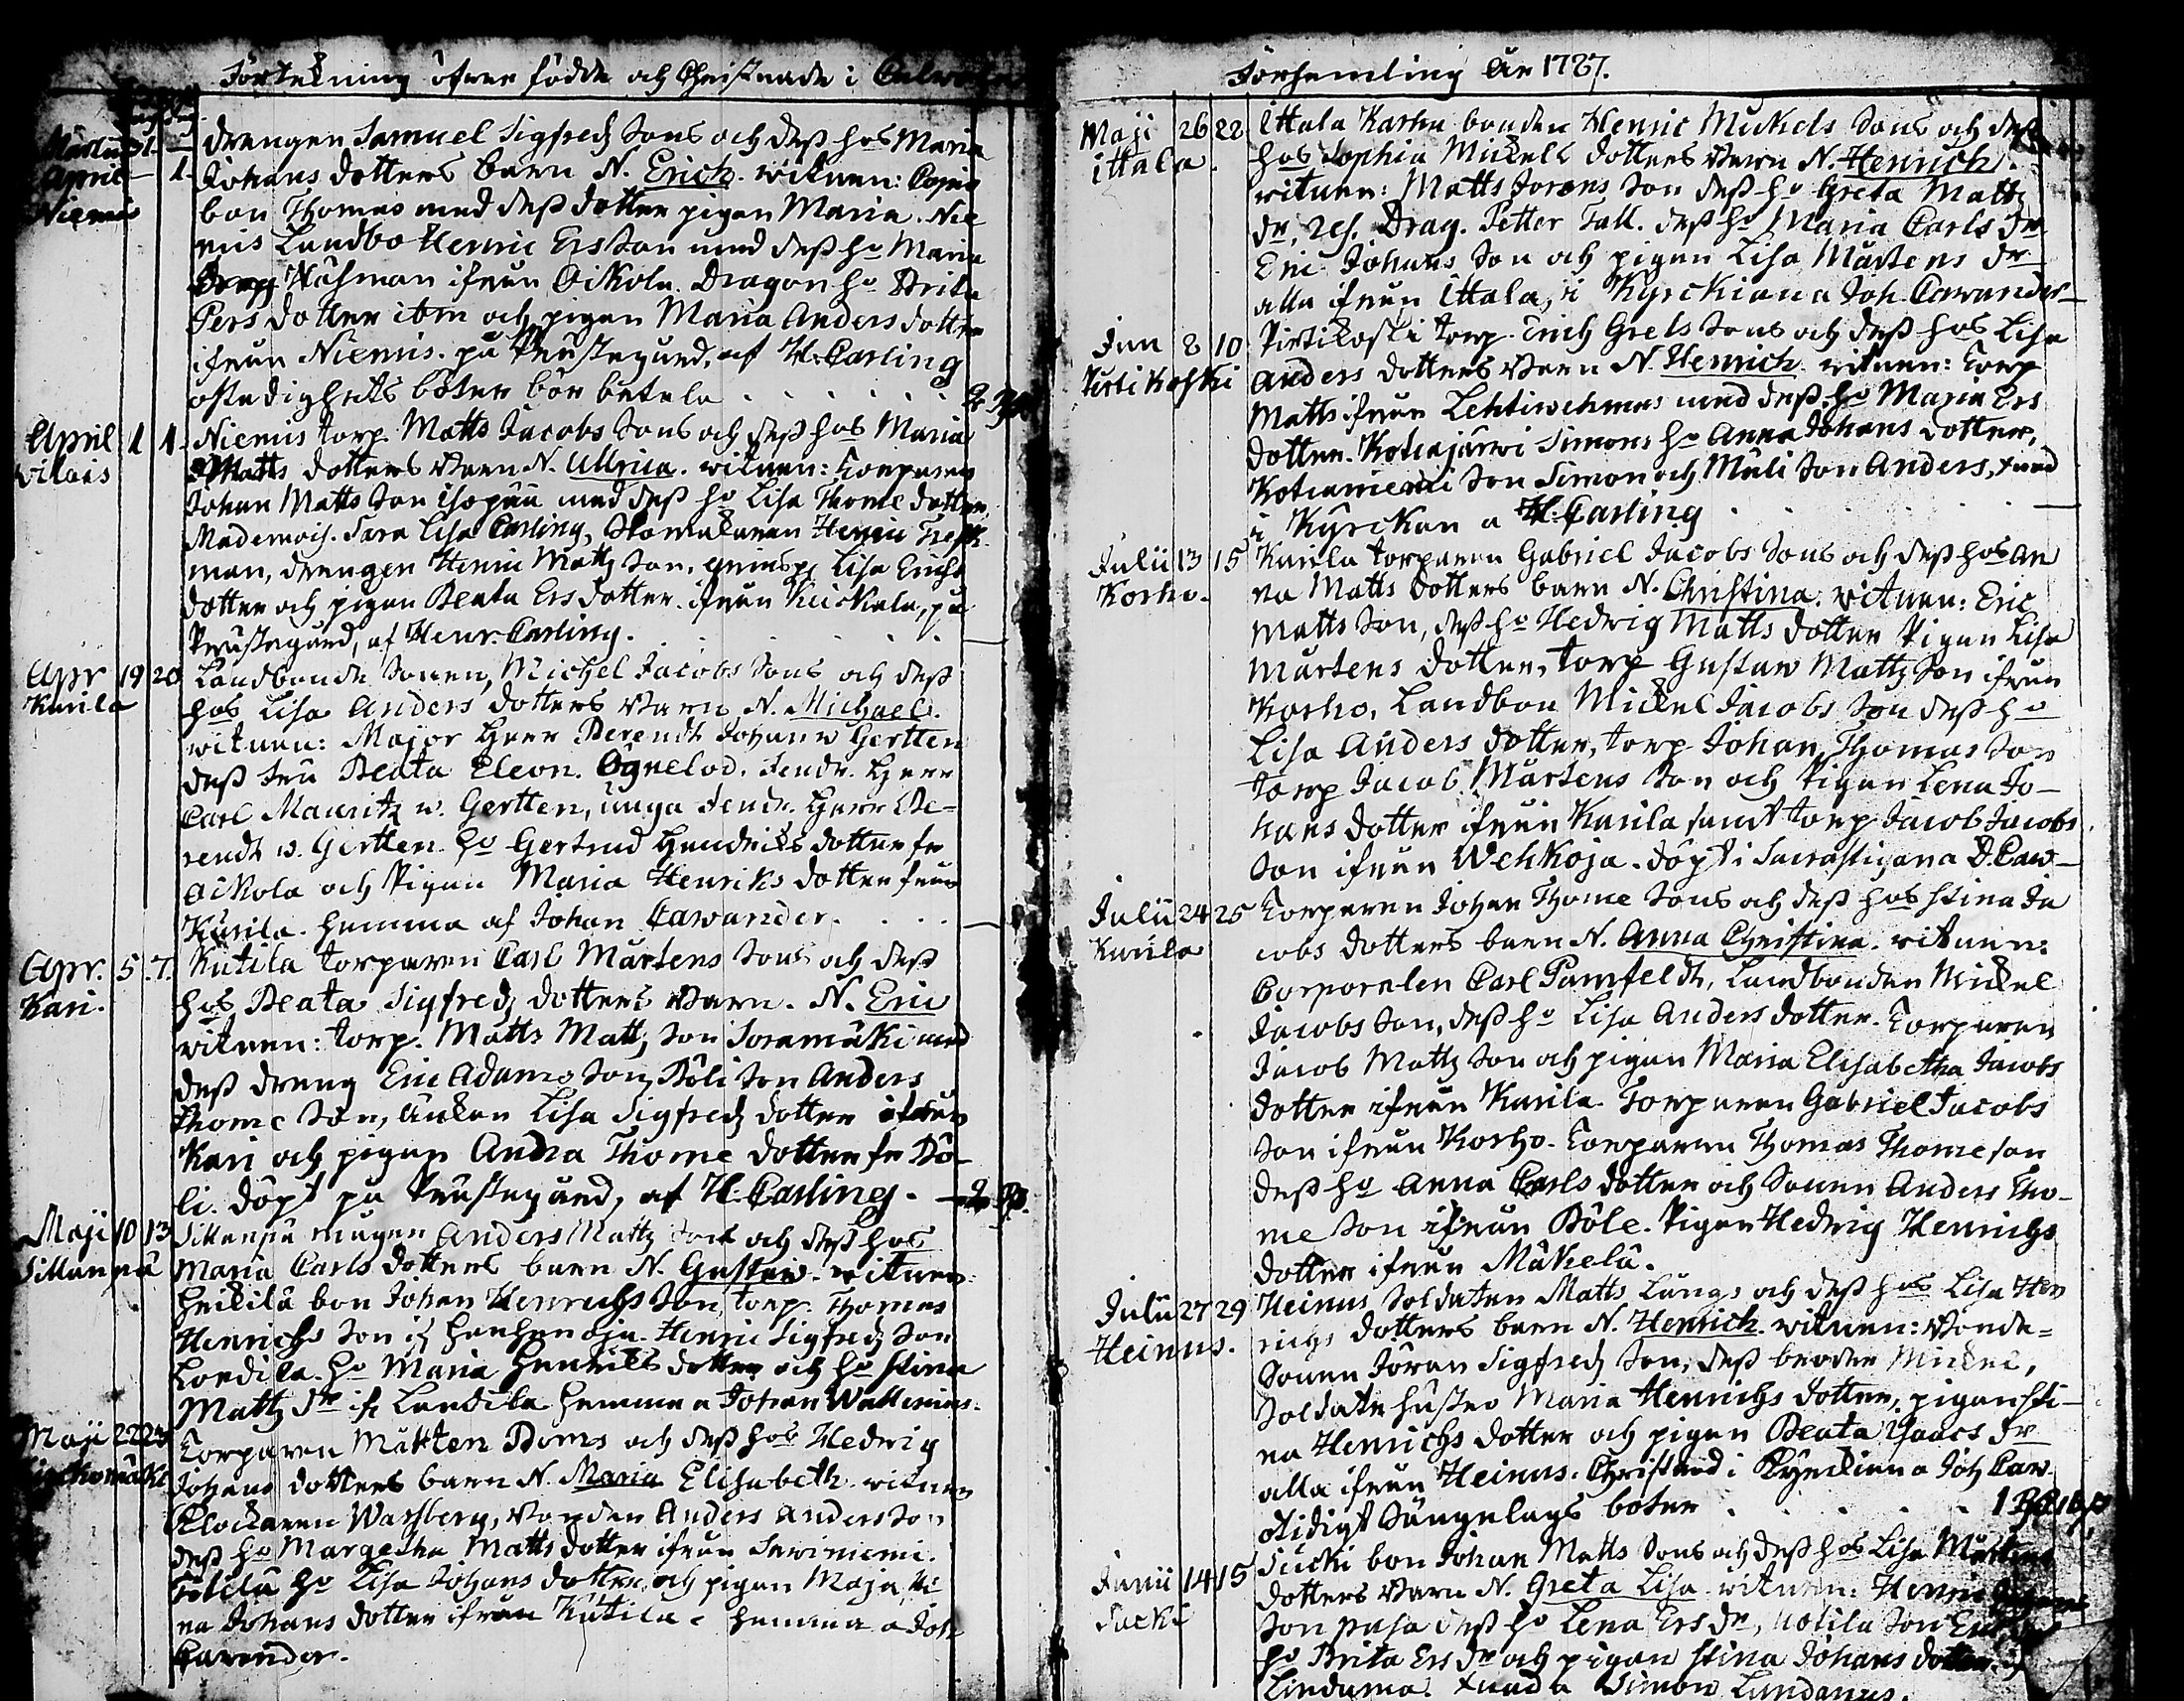 Förtekning öfwer födde och Christnade i Calwola
Martii 31. — drengen Samuel Sigfredz Sons och deß hos Maria
April — 1. Johans dotters barn N. Erich. witnen:
Niemis bon Thomas med deß dotter pigan Maria. Nie
mis Landbo Henric Ersson med deß ho Maria
Husman ifrån Oikola. Dragon ho Brita
Pers dotter ibm och pigan Maria Anders dotter
ifrån Niemis. på Prustegård, af H. Carling
ostadighets böter bör betala . . . . . .
April 1 1. Niemis torp. Matts Jacobs Sons och deß hos Maria
Matts dotters Barn N. Ullrica. witnen: torparen
Johan Matts Son Isopää med deß ho Lisa Thome dotter,
Mademois. Sara Lisa Carling, Skomakaren Henric
man, drengen Henric Mattz Son, Lisa Erichs
dotter och pigan Beata Ers dotter ifrån Kuckola, på
Prustegård, af Henr. Carling. . . . . .
Apr 19 20 Landbonde Sonen, Michel Jacobs Sons och deß
Kurila hos Lisa Anders dotters Barn N. Michael.
witnen: Major Herr Berendt Johan w Gertten
deß fru Beata Eleon. Ögnelod. Fendr. Herr
Carl Mauritz w. Gertten, unga Fendr. Herr Be-
rendt w. Gertten. ho Gertrud Hendrics dotter fr
Oikola och Pigan Maria Henriks dotter från
Kurila. hemma af Johan Cawander. . . .
Apr. 5. 7. Kutila torparen Carl Mårtens Sons och deß
Kari. hos Beata Sigfredz dotters Barn. N. Eric
witnen: torp. Matts Mattz Son Soramäki med
deß dreng Eric Adams Son, Böli Son Anders
Thome Son, änkan Lisa Sigfredz dotter ifrån
Kari och pigan Andra Thome dotter fr Bö-
li. döpt på Prustegård, af H. Carling.
Maji 10 13 Sillanpä mågen Anders Mattz Sons och deß hos
Sillanpä Maria Carls dotters barn N. Gustaw. witnen:
Heikilä bon Johan Henrichs Son, torp. Thomas
Henrichs Son if Henric Sigfredz Son
ho Maria Henrics dotter och ho Stina
Mattz dr if Landila hemma a Johan Wallenius.
Maji 22 23 Torparen Mårten Boms och deß hos Hedwig
Johans dotters barn N. Maria Elisabeth. witnen
Klockaren Warlberg, Bonden Anders Anders Son
deß ho Margetha Matts dotter ifrån Sawiniemi.
ho Lisa Johans dotter, och pigan Maja Ste
na Johans dotter ifrån Kutila. hemma a Joh
Cawander.
Församling År 1787.
Maji 26 28 Ittala Karhu bonden Henric Mickels Sons och deß
ittala. hos Sophia Mickels dotters Barn N. Henrich.
witnen: Matts Jorans Son deß ho Greta Mattz
dr, res. Drag. Petter Tall. deß ho Maria Carls dr.
Eric Johans Son och pigan Lisa Mårtens dr
alla ifrån Ittala, i Kyrckian a Joh. Cawander
Jun 8 10 Pirtikoski torp. Erich Grels Sons och deß hos Lisa
Pirti Koski Anders dotters Barn N. Henrich. witnen: torp
Matts ifrån Lehtiwehmas med deß ho Maria Ers
dotter. Kotkajärwi Simons ho Anna Johans dotter,
Kotkaniemi Son Simon och Muli Son Anders, xnad
i Kyrckan a H. Carling . . . . .
Julii 13 15 Kurila torparen Gabriel Jacobs Sons och deß hos An
Korho. na Matts dotters barn N. Christina. witnen: Eric
Matts Son, deß ho Hedwig Matts dotter Pigan Lisa
Mårtens dotter, torp Gustaw Mattz Son ifrån
Korho, Landbon Mickel Jacobs Son deß ho
Lisa Anders dotter, torp Johan Thomas Son
torp Jacob Mårtens Son och Pigan Lena Jo-
hans dotter ifrån Kurila samt torp Jacob Jacobs
Son ifrån Wehkoja. döpt i Sacrastigan a J. Caw-
Julii 24 25 Torparen Johan Thome Sons och deß hos Stina Ja
Kurila cobs dotters barn N. Anna Christina. witnen:
Corporalen Carl Pamfeldt, Landbonden Mickel
Jacobs Son, deß ho Lisa Anders dotter. Torparen
Jacob Mattz Son och pigan Maria Elisabetha Jacobs
dotter ifrån Kurila. Torparen Gabriel Jacobs
Son ifrån Korho. Torparen Thomas Thome son
deß ho Anna Carls dotter och Sonen Anders Tho-
me Son ifrån Böle. Pigan Hedwig Henrichs
dotter ifrån Mäkelä.
Julii 27 29 Heinus Soldaten Matts Längs och deß hos Lisa Hen
Heinus. richs dotters barn N. Henrich. witnen: Bonde-
Sonen Jöran Sigfredz Son, deß broder Mickel,
Soldate hustro Maria Henrichs dotter, pigan Sti-
na Henrichs dotter och pigan Beata Isaacs dr
alla ifrån Heinus. Christnad i Kyrckian a Joh Caw.
otidigt Sängelags böter . . . . .
Junii 14 15 Sucki bon Johan Matts Sons och deß hos Lisa Mårtens
Sucki dotters Barn N. Greta Lisa. witnen: Henric
Son pasa deß ho Lena Ers dr, Uotila Son
ho Brita Ers dr och pigan Stina Johans dotter
Linduma. xnad a Simon Lundanus.